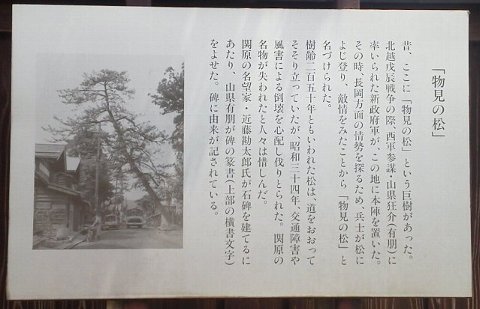 「物見の松」
昔、ここに「物見の松」という巨樹があった。
北越戊辰戦争の際、西軍参謀・山県狂介(有朋)に
率いられた新政府軍が、この地に本陣を置いた。
その時、長岡方面の情勢を探るため、兵士が松に
よじ登り、敵情をみたことから「物見の松」と
名づけられた。
樹齢二百五十年ともいわれた松は、道をおおって
そそり立っていたが、昭和三十四年、交通障害や
風害による倒壊を心配し伐りとられた。関原の
名物が失われたと人々は惜しんだ。
関原の名望家・近藤勘太郎氏が石碑を建てるに
あたり、山県有朋が碑の篆書(上部の横書文字)
をよせた。碑に由来が記されている。